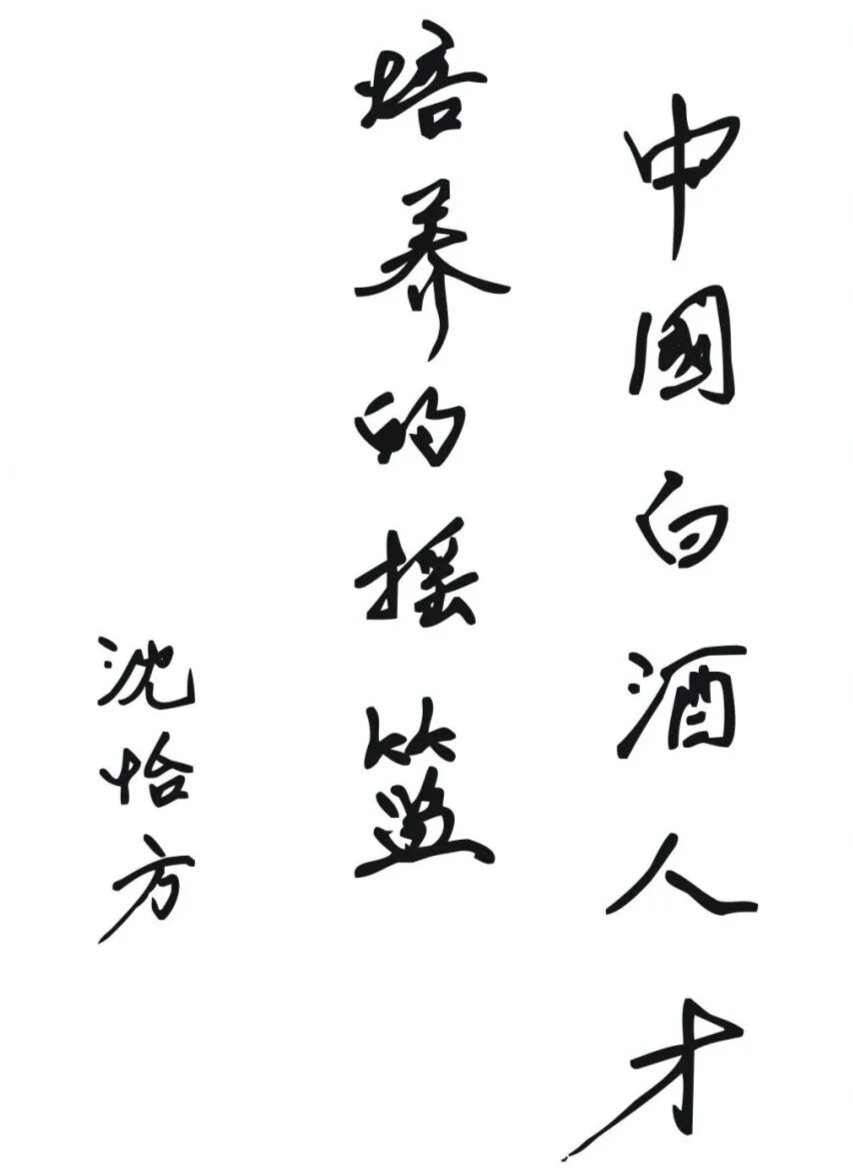 中國白酒人才
培养的摇篮
沈怡方